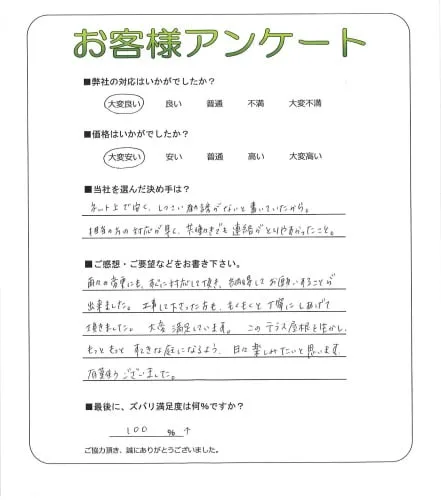 お客様アンケート
■弊社の対応はいかがでしたか?
大変良い 良い 普通 不満 大変不満
■価格はいかがでしたか?
大変安い 安い 普通 高い 大変高い
■当社を選んだ決め手は?
ネット上で安く、しつこい勧誘がないと書いていたから。
担当の方の対応が早く、共働きでも連絡がとりやすかったこと。
■ご感想・ご要望などをお書き下さい。
変更にも、対応して頂き、納得してお願いすることが
出来ました。工事して下さった方も、もくもくと丁寧にしあげて
頂きました。大変満足しています。このテラス屋根を活かし、
もっともっとすてきな庭になるよう、日々楽しみたいと思います。
有難うございました。
■最後に、ズバリ満足度は何%ですか?
100 %
ご協力頂き、誠にありがとうございました。